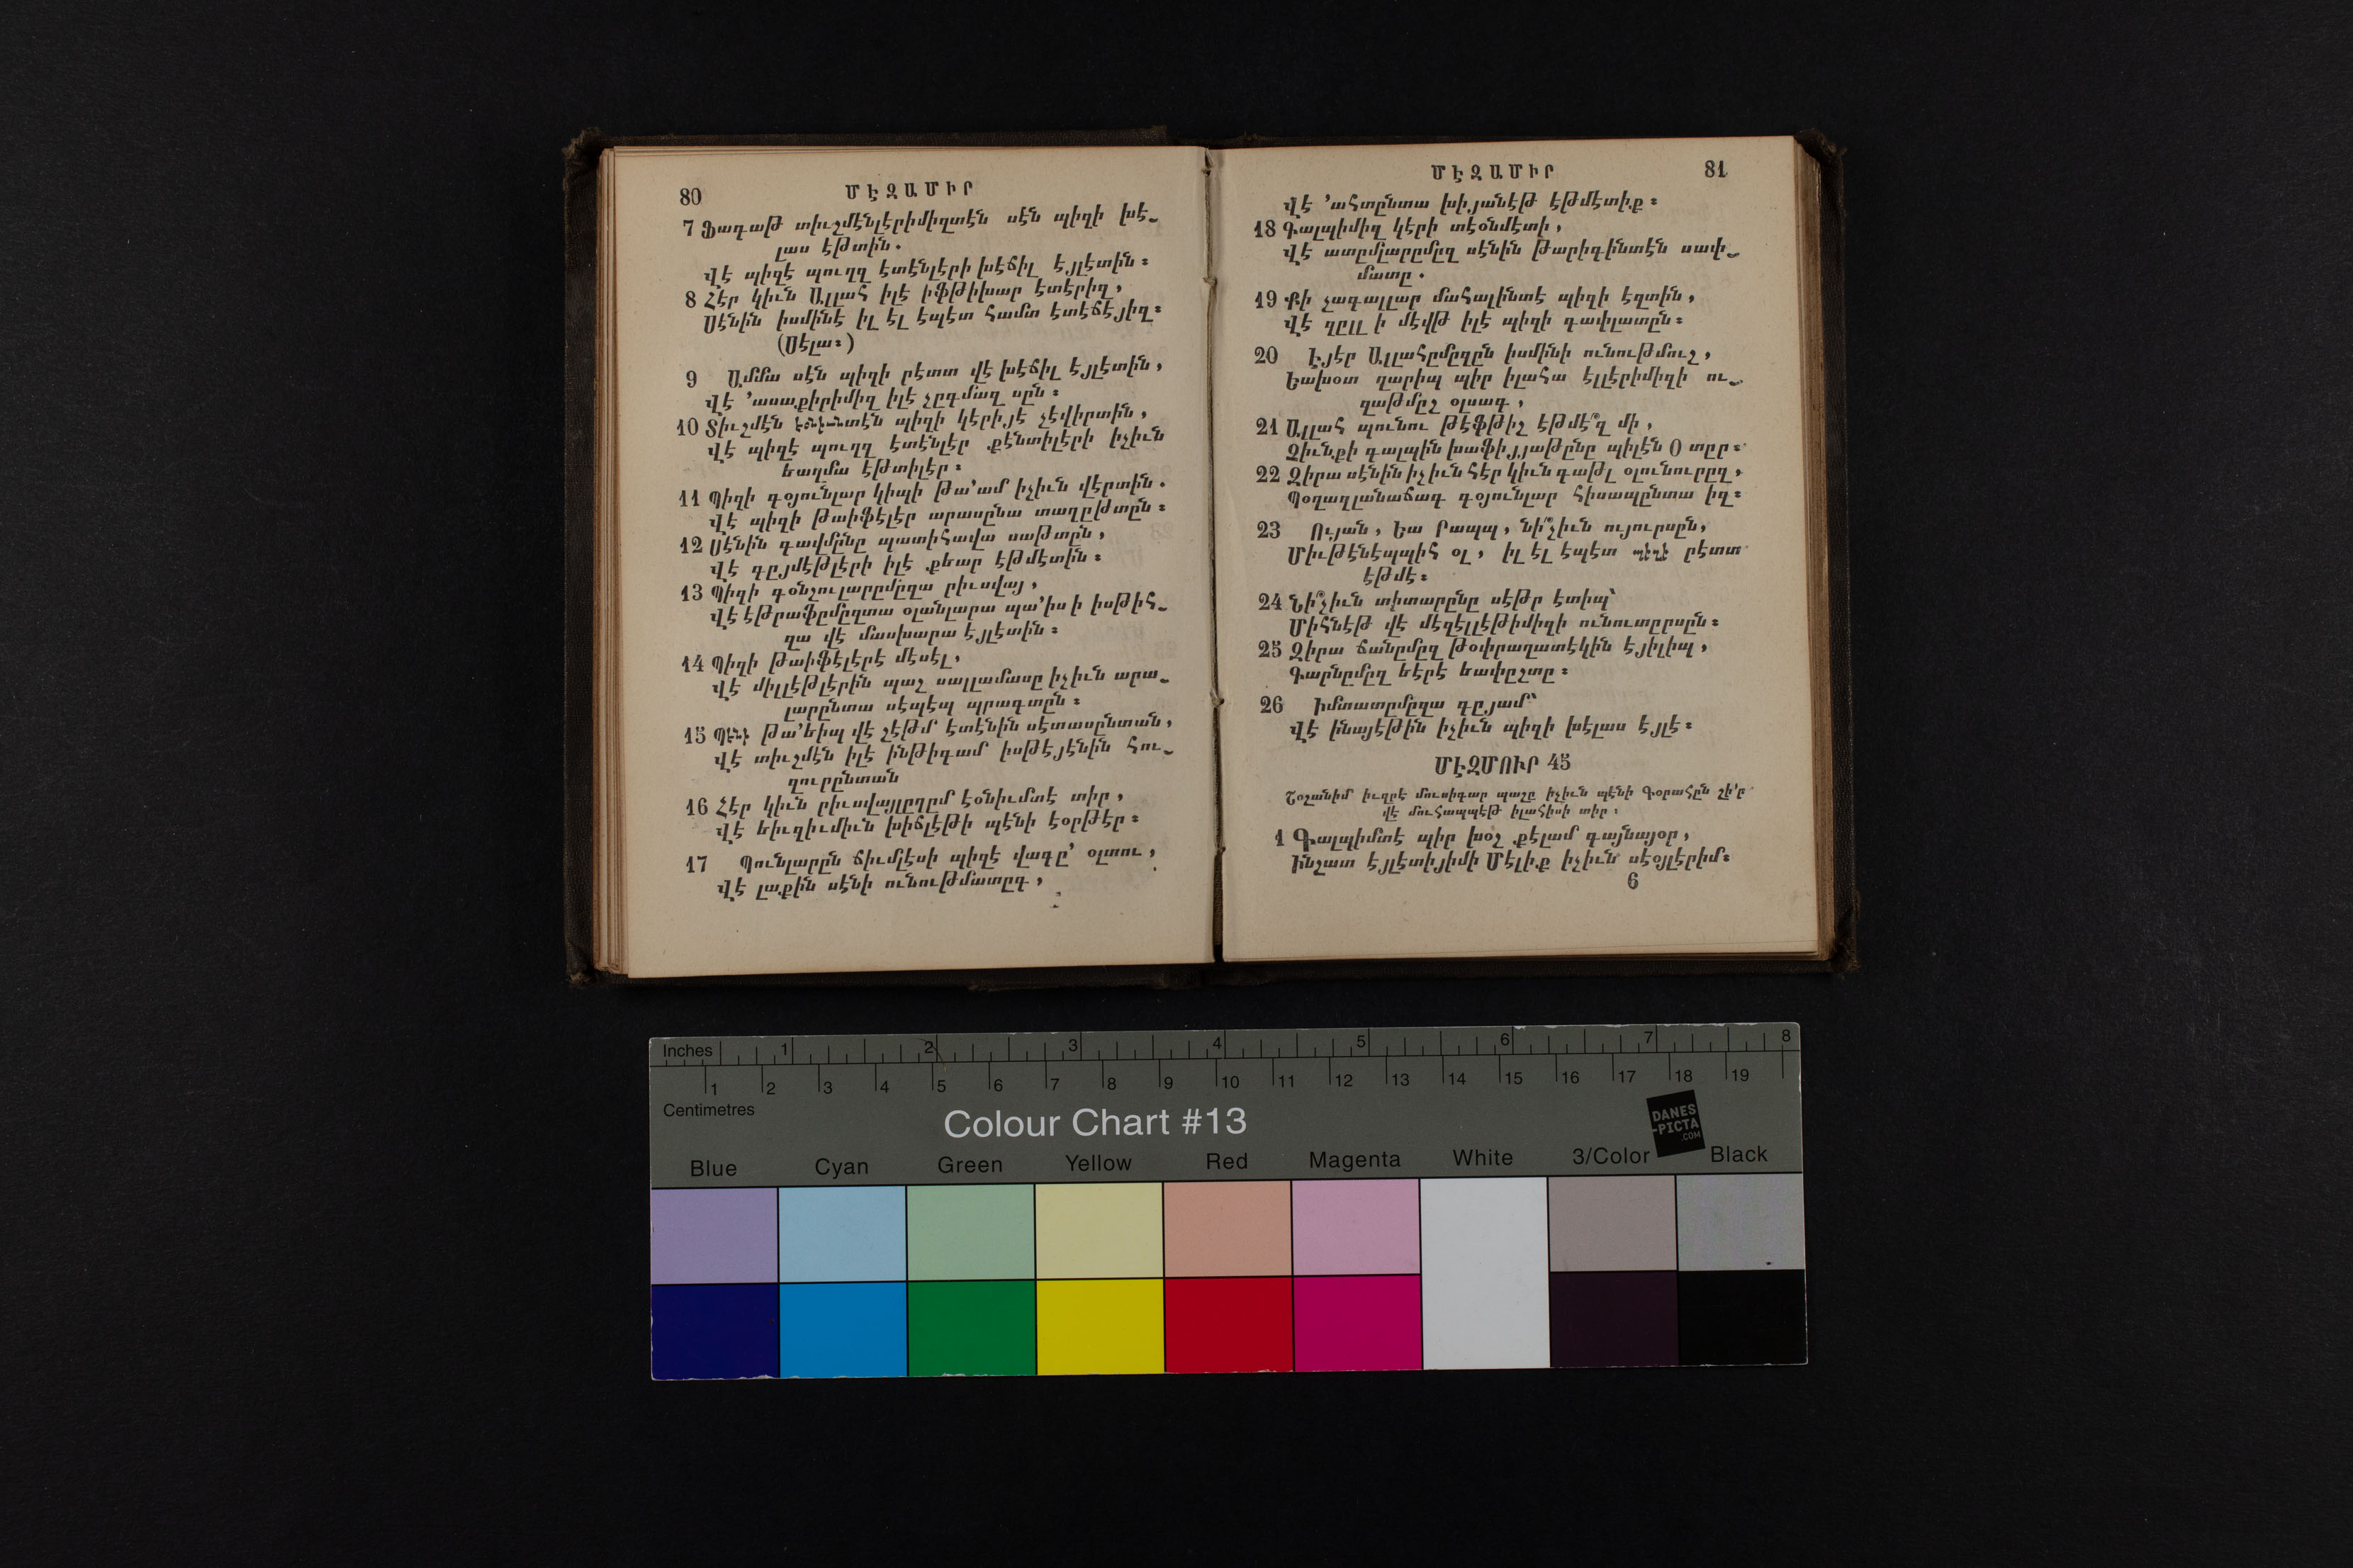 80 ՄԷԶԱՄԻՐ
7 Ֆագաթ տիւշմէնլէրիմիզտէն սէն պիզի խէ-
լաս էթտին.
Վէ պիզէ պուղզ էտէնլէրի խէճիլ էյլէտին։
8 Հէր կիւն Ալլահ իլէ իֆթիխար էտէրիզ,
Սէնին իսմինէ իլ էլ էպէտ համտ էտէճէյիզ։
(Սէլա։)
9 Ամմա սէն պիզի րէտտ վէ խէճիլ էյլէտին,
Վէ ՚ասաքիրիմիզ իլէ չըգմազ սըն։
10 Տիւշմէն էօնիւնտէն պիզի կէրիյէ չէվիրտին,
Վէ պիզէ պուղզ էտէնլէր քէնտիլէրի իչիւն
եաղմա էթտիլէր։
11 Պիզի գօյունլար կիպի թա՚ամ իչիւն վէրտին.
Վէ պիզի թաիֆէլէր արասընա տաղըթտըն։
12 Սէնին գավմընը պատիհավա սաթտըն,
Վէ գըյմէթլէրի իլէ քեար էթմէտին։
13 Պիզի գօնշուլարըմըզա րիւսվայ,
Վէ էթրաֆըմըզտա օլանլարա պա՚իս ի իսթիհ-
զա վէ մասխարա էյլէտին։
14 Պիզի թաիֆէլէրէ մէսէլ,
Վէ միլլէթլէրին պաշ սալլամասը իչիւն արա-
լարընտա սէպէպ պրագտըն։
15 Պէնի թա՚եիպ վէ շէթմ էտէնին սէտասընտան,
Վէ տիւշմէն իլէ ինթիգամ իսթէյէնին հու-
զուրընտան
16 Հէր կիւն րիւսվայլըղըմ էօնիւմտէ տիր,
Վէ եիւզիւմիւն խիճլէթի պէնի էօրթէր։
17 Պունլարըն ճիւմլէսի պիզէ վագը՚ օլտու,
Վէ լաքին սէնի ունութմատըգ,
ՄԷԶԱՄԻՐ 81
Վէ ՚ահտընտա խիյանէթ էթմէտիք։
18 Գալպիմիզ կէրի տէօնմէտի,
Վէ ատըմլարըմըզ սէնին թարիգինտէն սափ-
մատը.
19 Քի չագալլար մահալինտէ պիզի էզտին,
Վէ զըլլ ի մէվթ իլէ պիզի գափլատըն։
20 Էյէր Ալլահըմըզըն իսմինի ունութմուշ,
Եախօտ ղարիպ պիր իլահա էլլէրիմիզի ու-
զաթմըշ օլսագ,
21 Ալլահ պունու թէֆթիշ էթմէ՞զ մի,
Զիւնքի գալպին խաֆիյյաթընը պիլէն Օ տըր։
22 Զիրա սէնին իչիւն հէր կիւն գաթլ օլունուրըզ,
Պօղազլանաճագ գօյունլար հիսապընտա իզ։
23 Ույան, Եա Րապպ, նի՞չիւն ույուրսըն,
Միւթէնէպպիհ օլ, իլ էլ էպէտ պիզի րէտտ
էթմէ։
24 Նի՞չիւն տիտարընը սէթր էտիպ՝
Միհնէթ վէ մէզէլլէթիմիզի ունուտըրսըն։
25 Զիրա ճանըմըզ թօփրաղատէկին էյիլիպ,
Գարնըմըզ եէրէ եափըշտը։
26 Իմտատըմըզա գըյամ՝
Վէ ինայէթին իչիւն պիզի խէլաս էյլէ։
ՄԷԶՄՈՒՐ 45
Շօշանիմ իւզրէ մուսիգար պաշը իչիւն պէնի Գօրահըն շի՚ր
վէ մուհապպէթ իլահիսի տիր.
1 Գալպիմտէ պիր խօշ քէլամ գայնայօր,
Ինշատ էյլէտիյիմի Մէլիք իչիւն սէօյլէրիմ։
6
Inches 1 2 3 4 5 6 7 8
1 2 3 4 5 6 7 8 9 10 11 12 13 14 15 16 17 18 19
Centimetres
Colour Chart #13
DANES
-PICTA
.COM
Blue Cyan Green Yellow Red Magenta White 3/Color Black